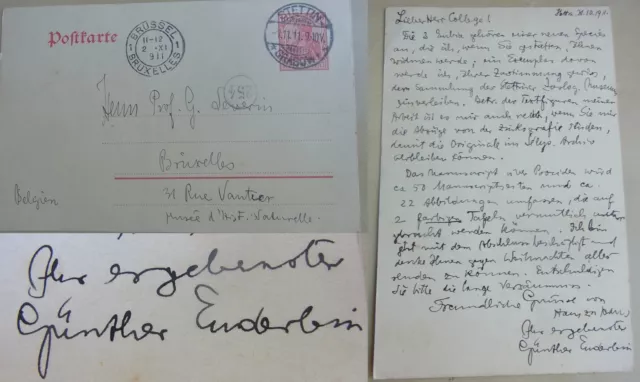 Postkarte
BRÜSSEL 1
11-12
2 -XI
911
BRUXELLES 1
STETTIN
1.11.11. 9-10V.
GRABOW
Herrn Prof. G. Severin
Brüxelles
31 Rue Vautier
Belgien
Musée d'Hist. Naturelle.
Ihr ergebenster
Günther Enderlein
Lieber Herr College!
Die 2 gehören einer neuen Species
an, die ich, wenn Sie gestatten, Ihnen
widmen werde; ein Exemplar davon
werde ich, Ihrer Zustimmung gewiss,
der Sammlung des Stettiner Zoolog. Museum
einverleiben. Betr. der Textfiguren meiner
Arbeit ist es mir auch recht, wenn Sie mir
die Abzüge von der Zinkografie senden,
damit die Originale im Archiv
verbleiben können.
Das Manuscript wird
ca 50 Manuscriptseiten und ca.
22 Abbildungen umfassen, die auf
2 farbigen Tafeln vermuthlich unter-
gebracht werden können. Ich bin
jetzt mit dem Abschluss beschäftigt und
denke Ihnen gegen Weihnachten alles
senden zu können. Entschuldigen
Sie bitte die lange Versäumniss.
Freundliche Grüsse von
Haus zu Haus
Ihr ergebenster
Günther Enderlein